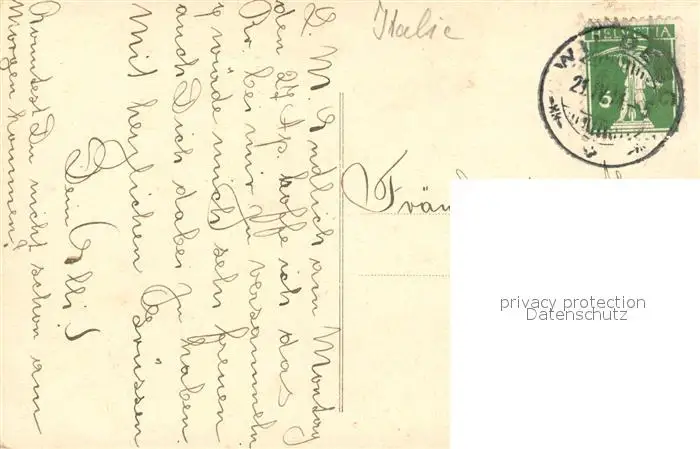 Italie
HELVETIA
5
L. M. Endlich am Montag
den 27 Sp. hoffe ich das
bei mir zu versammeln
würde mich sehr freuen
auch Dich dabei zu haben.
Mit herzlichen Grüssen
Dein Olli!
Konntest Du nicht schon am
Morgen kommen?
Fräu
privacy protection
Datenschutz